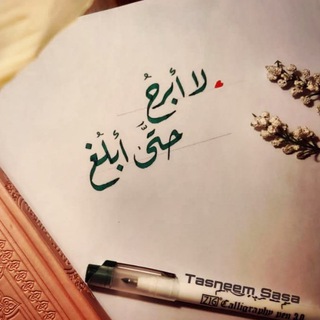 لا أبرحُ
حتَّىٰ أبلُغ
Tasneem Sasa
ZIG Calligraphy pen 2.0